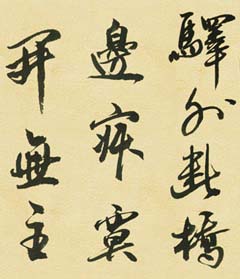 驛外斷橋
邊寂寞
開無主